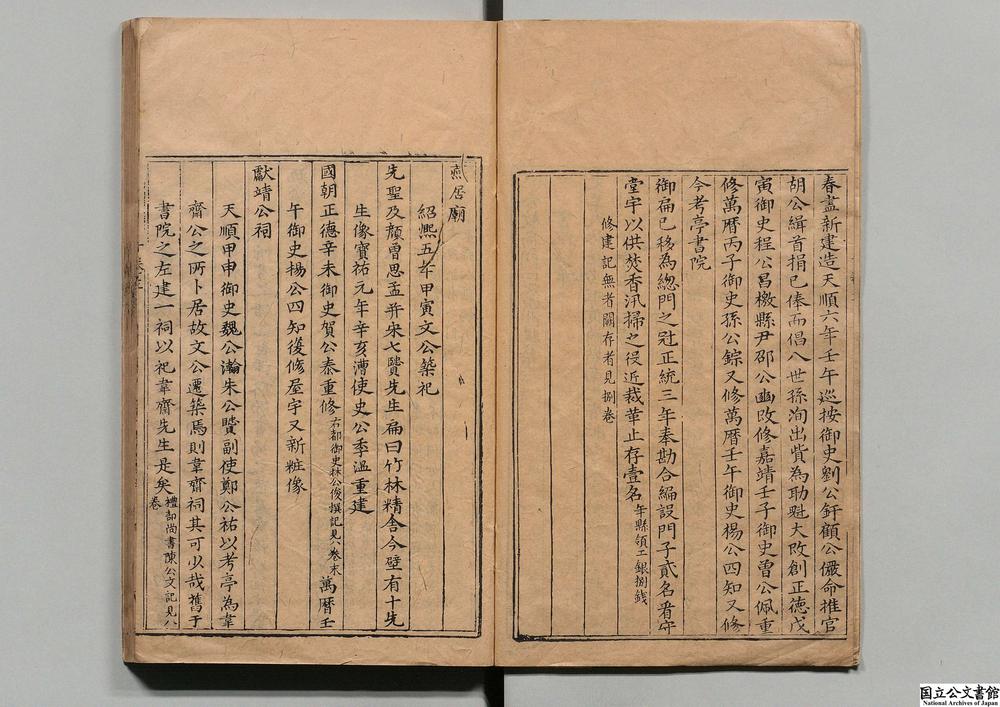 春盡新建造天順六年壬午巡按御史劉公釬顧公儼命推官
胡公緝首捐已俸而倡八世孫洵出貲為助魁大改創正德戊
寅御史程公昌檄縣尹邵公豳改修嘉靖壬子御史曾公佩重
修萬曆丙子御史孫公錝又修萬曆壬午御史楊公四知又修
今考亭書院
御扁已移為總門之冠正統三年奉勘合編設門子貳名看守
堂宇以供焚香汛掃之役近裁革止存壹名年縣領工銀捌錢
修建記無者闕存者見捌卷
燕居廟
紹熙五年甲寅文公築祀
先聖及顏曾思孟并宋七賢先生扁曰竹林精舍今壁有十先
生像寶祐元年辛亥漕使史公季溫重建
國朝正德辛未御史賀公泰重修右都御史林公俊撰記見八卷末萬曆壬
午御史楊公四知後修屋宇又新粧像
獻靖公祠
天順甲申御史魏公瀚朱公賢副使鄭公祐以考亭為韋
齋公之所卜居故文公遷築焉則韋齋祠其可少哉舊于
書院之左建一祠以祀韋齋先生是矣禮部尚書陳公文記見八卷
国立公文書館
National Archives of Japan